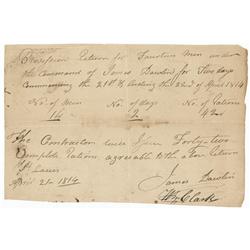 Provision Return for Fourteen Men under
the Command of James for Two days
Commencing the 21st & Ending the 22nd of April 1814
No. of Men No. of days No. of Rations
14 2 42
The Contractor will Issue Forty-two
Complete Rations agreeable to the above Return
St. Louis
April 21st 1814
James
Wm Clark